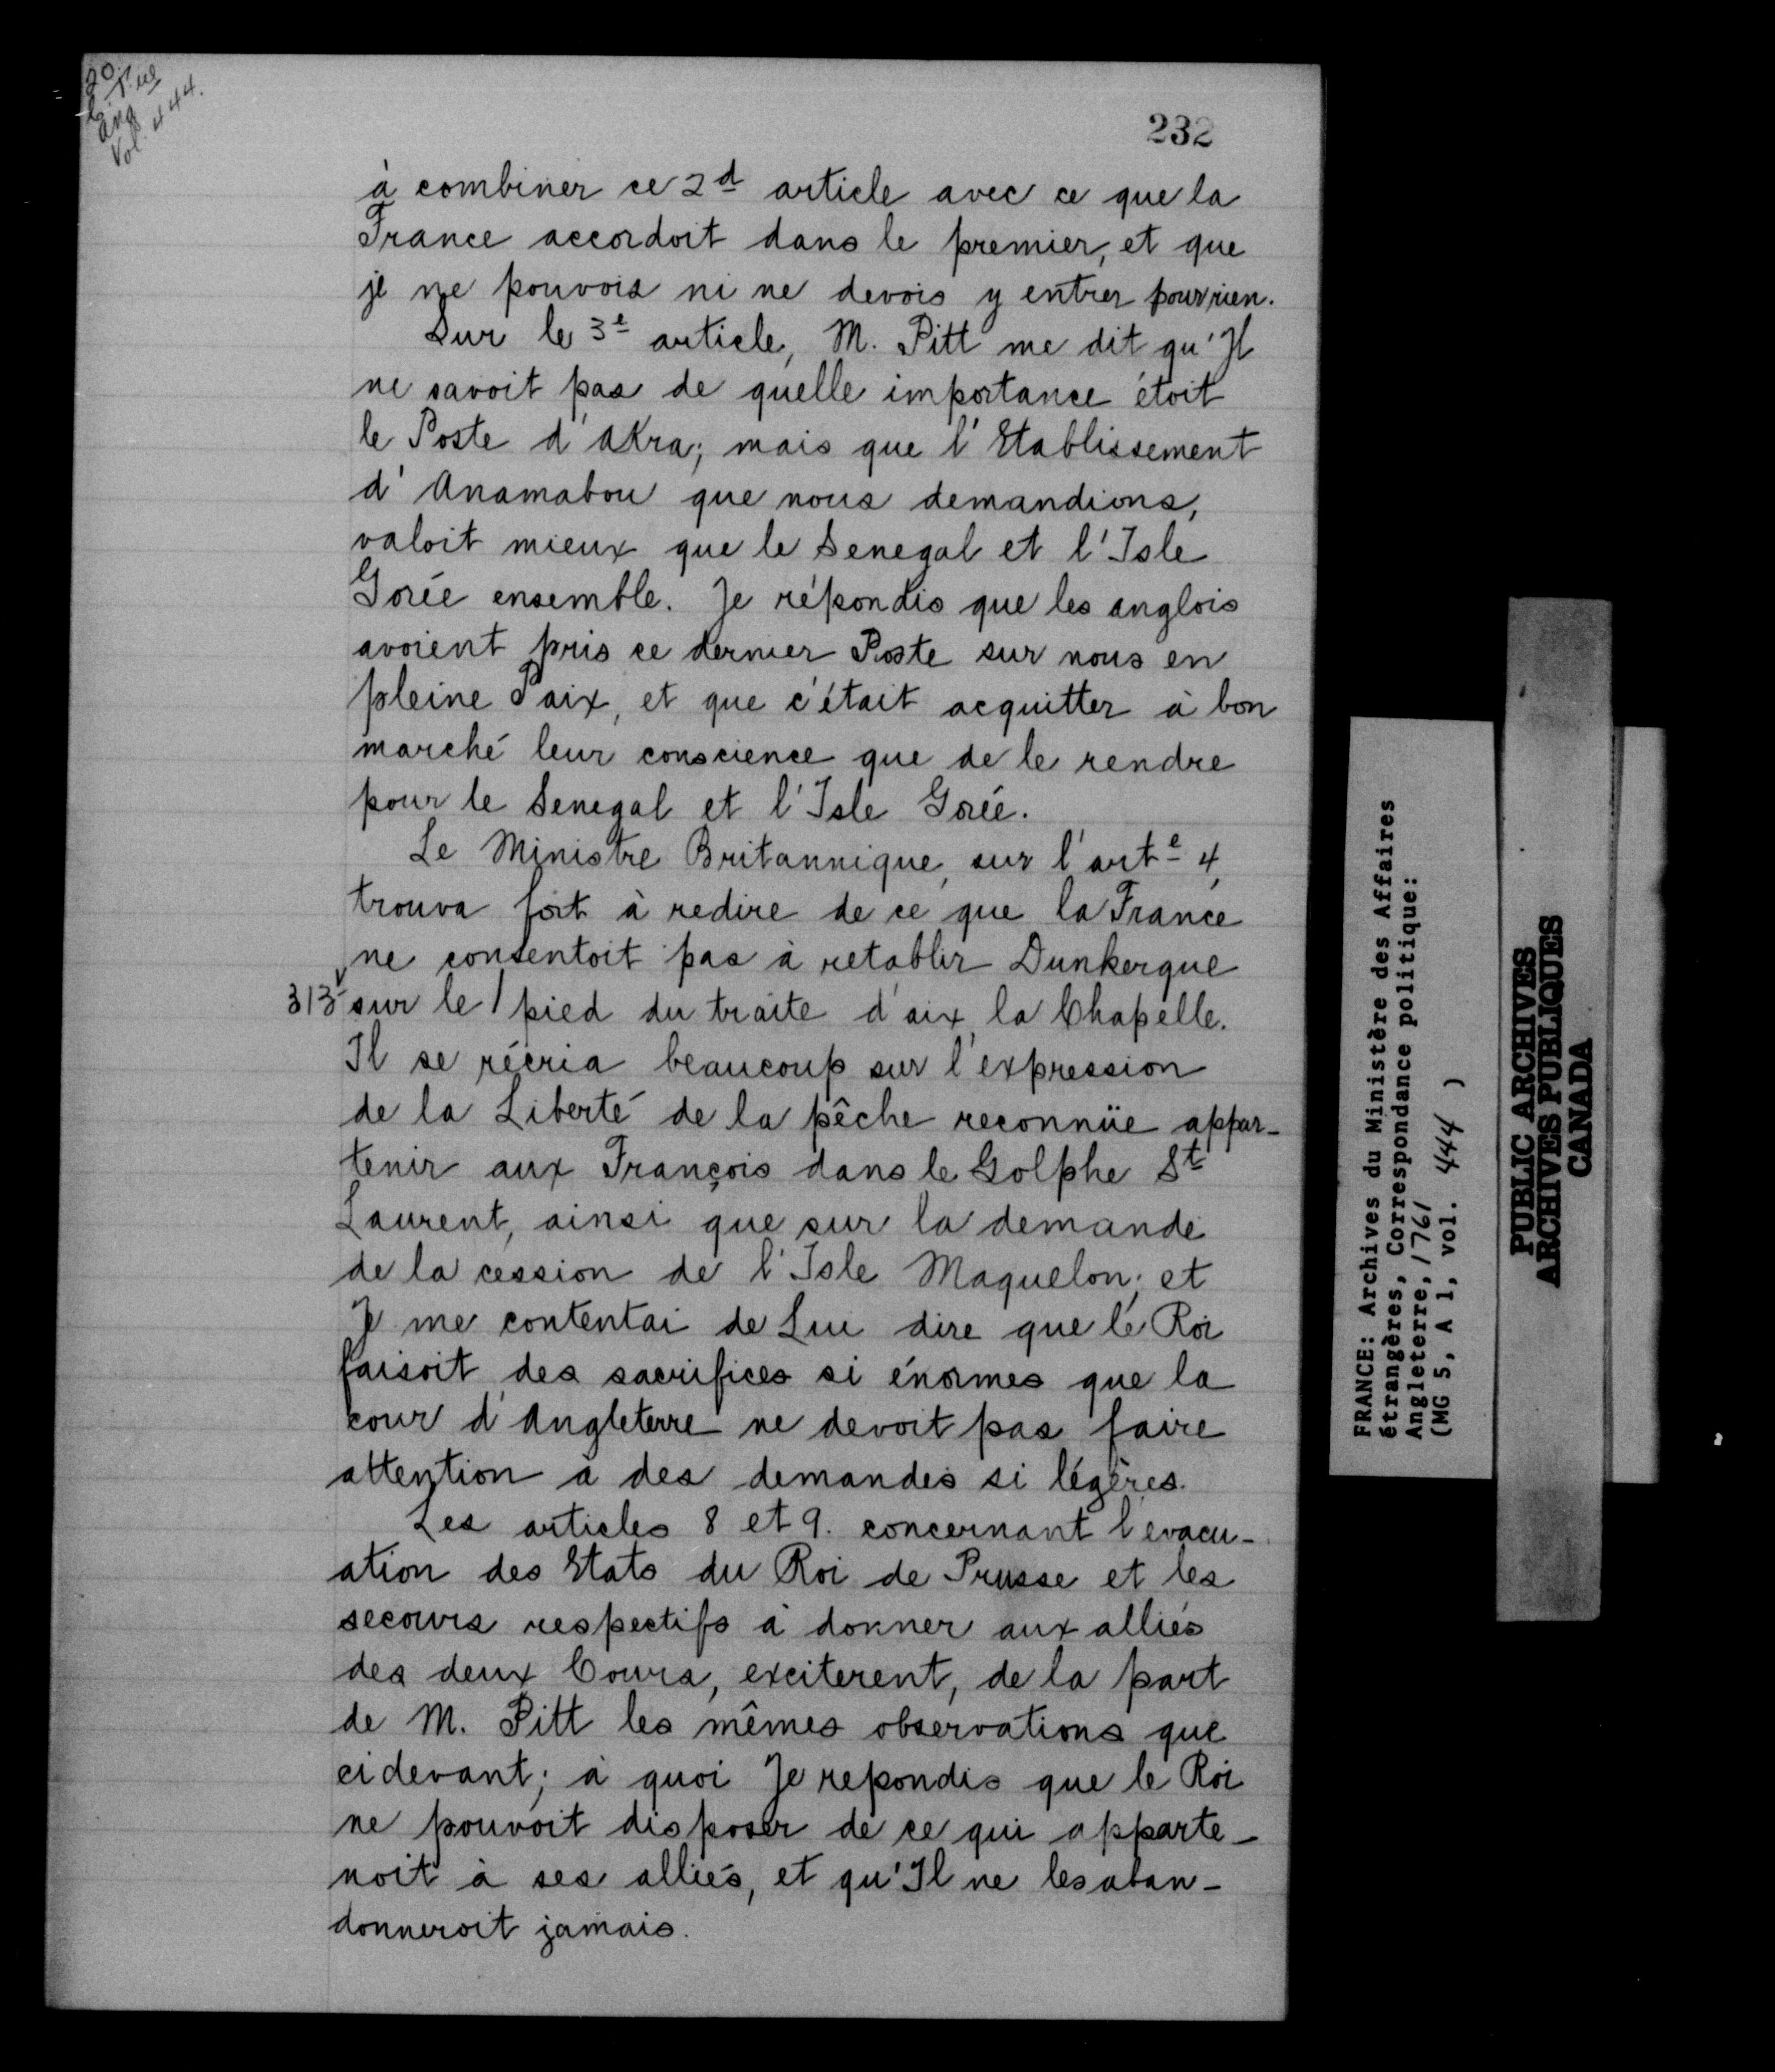 Vol. 444.
232
à combiner ce 2d article avec ce que la
France accordoit dans le premier, et que
je ne pouvois ni ne devois y entrer pour rien.
Sur le 3e article, M. Pitt me dit qu'Il
ne savoit pas de quelle importance étoit
le Poste d'Akra; mais que l'Etablissement
d'Anamabou que nous demandions,
valoit mieux que le Senegal et l'Isle
Gorée ensemble. Je répondis que les anglois
avoient pris ce dernier Poste sur nous en
pleine Paix, et que c'était acquitter à bon
marché leur conscience que de le rendre
pour le Senegal et l'Isle Gorée.
Le Ministre Britannique, sur l'arte 4,
trouva fort à redire de ce que la France
ne consentoit pas à retablir Dunkerque
313 sur le / pied du traite d'aix la Chapelle.
Il se récria beaucoup sur l'expression
de la Liberté de la pêche reconnüe appar-
tenir aux François dans le Golphe St
Laurent, ainsi que sur la demande
de la cession de l'Isle Maquelon; et
Je me contentai de Lui dire que le Roi
faisoit des sacrifices si énormes que la
cour d'Angleterre ne devoit pas faire
attention à des demandes si légères.
Les articles 8 et 9. concernant l'evacu-
ation des Etats du Roi de Prusse et les
secours respectifs à donner aux alliés
des deux Cours, exciterent, de la part
de M. Pitt les mêmes observations que
ci devant; à quoi Je repondis que le Roi
ne pouvoit disposer de ce qui apparte-
noit à ses alliés, et qu'Il ne les aban-
donneroit jamais.
FRANCE: Archives du Ministère des Affaires
étrangères, Correspondance politique:
Angleterre, 1761
(MG 5, A 1, vol. 444 )
PUBLIC ARCHIVES
ARCHIVES PUBLIQUES
CANADA